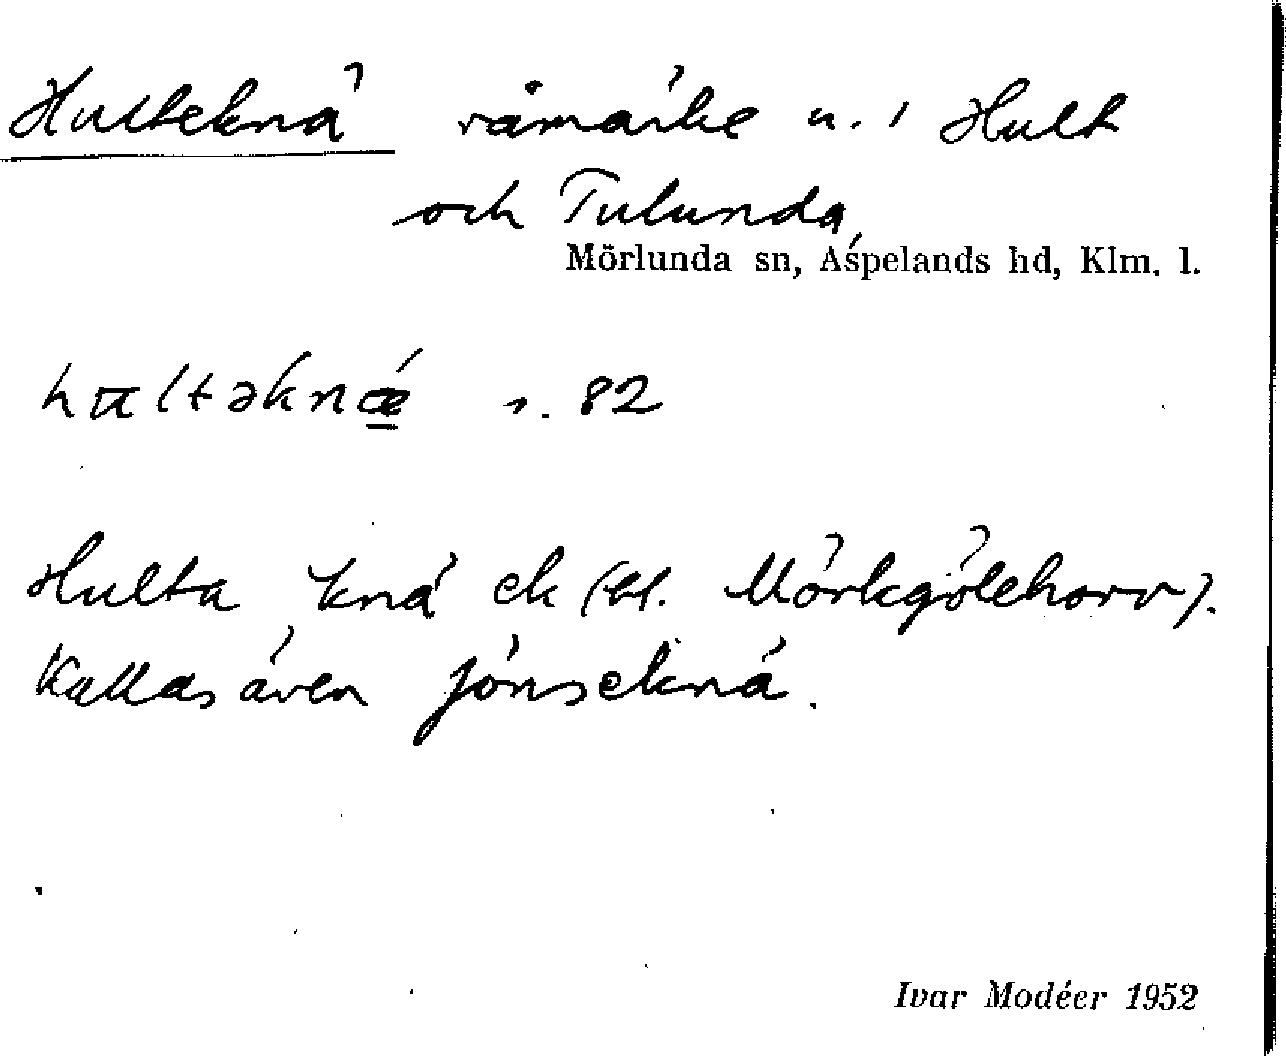 Hulteknä råmärke u. / Hult
och Tulunda,
Mörlunda sn, Aspelands hd, Klm. l.
hultəknǽ s. 82
Hulta knä ek (bl. Mörkgölehorv).
Kallas även Jönseknä.
Ivar Modéer 1952